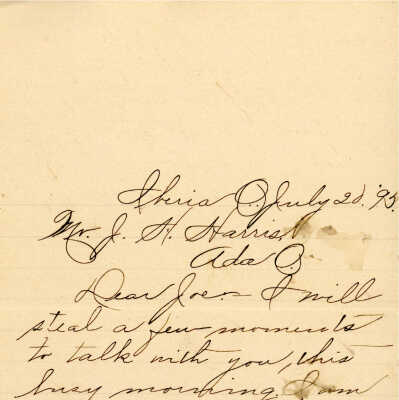 Iberia O. July 20. '95.
Mr. J. H. Harris,
Ada O.
Dear Joe:- I will
steal a few moments
to talk with you, this
busy morning. I am